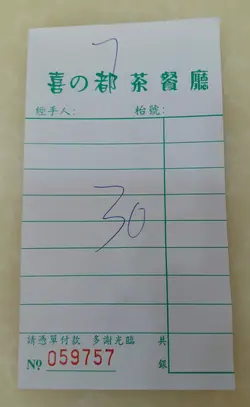 7
喜の都茶餐廳
經手人： 枱號：
30
請憑單付款 多謝光臨 共
銀
№ 059757